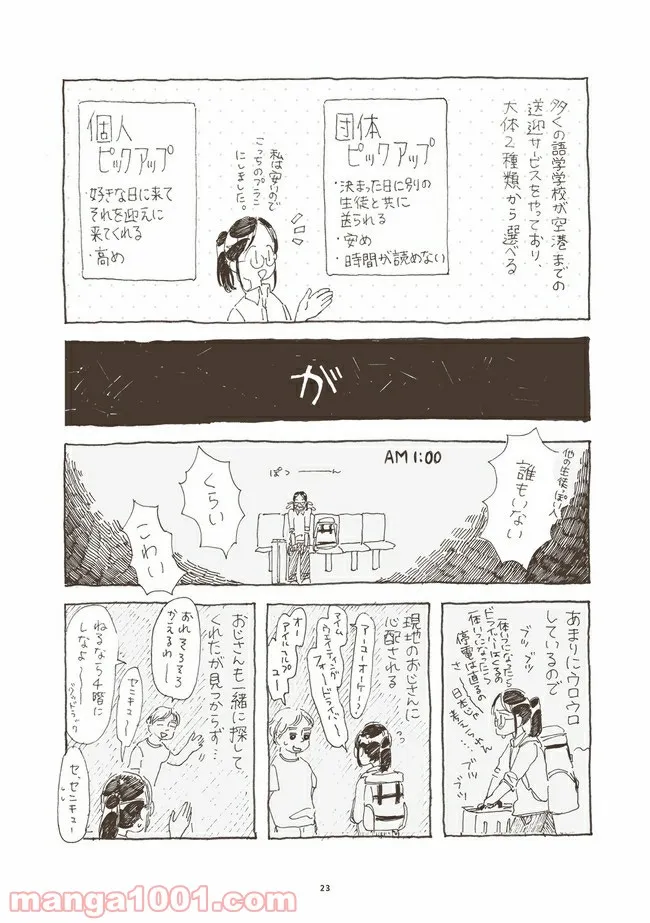 多くの語学学校が空港までの
送迎サービスをやっており、
大体2種類から選べる
団体
ピックアップ
・決まった日に別の
生徒と共に
送られる
・安め
・時間が読めない
私は安いので
こっちのプランに
にしました。
個人
ピックアップ
・好きな日に来て
それを迎えに
来てくれる
・高め
が
AM 1:00
他の生徒っぽい人
誰もいない
ぽつーーん
くらい
こわい
あまりにウロウロ
しているので
ブツブツ
一体いつになったら
ドライバーはくるの
一体いつになったら
停電は直るの
さー日本じゃ
考えらんないん
…ブツ
ブツ
現地のおじさんに
心配される
アーユーオーケー?
アイム
ウェイティング
フォードライバー
オー
アイルヘルプ
ユー
おじさんも一緒に探して
くれたが見つからず…
おれそろそろ
かえるわー
センキュー
ねるなら4階に
しなよ〜
グッドラック
セ、センキュー
23
manga1001.com